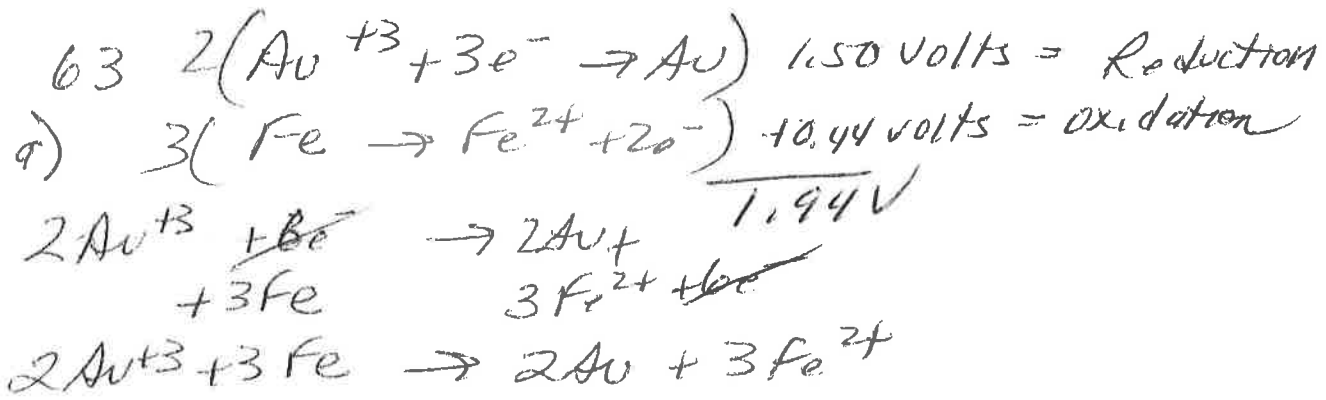 63 2(Au +3 + 3e⁻ → Au) 1.50 volts = Reduction
a) 3( Fe → Fe²⁺ + 2e⁻) +0.44 volts = oxidation
1.94V
2Au+3 +6e⁻ → 2Au +
+3Fe 3Fe²⁺ +6e⁻
2Au+3 + 3Fe → 2Au + 3Fe²⁺